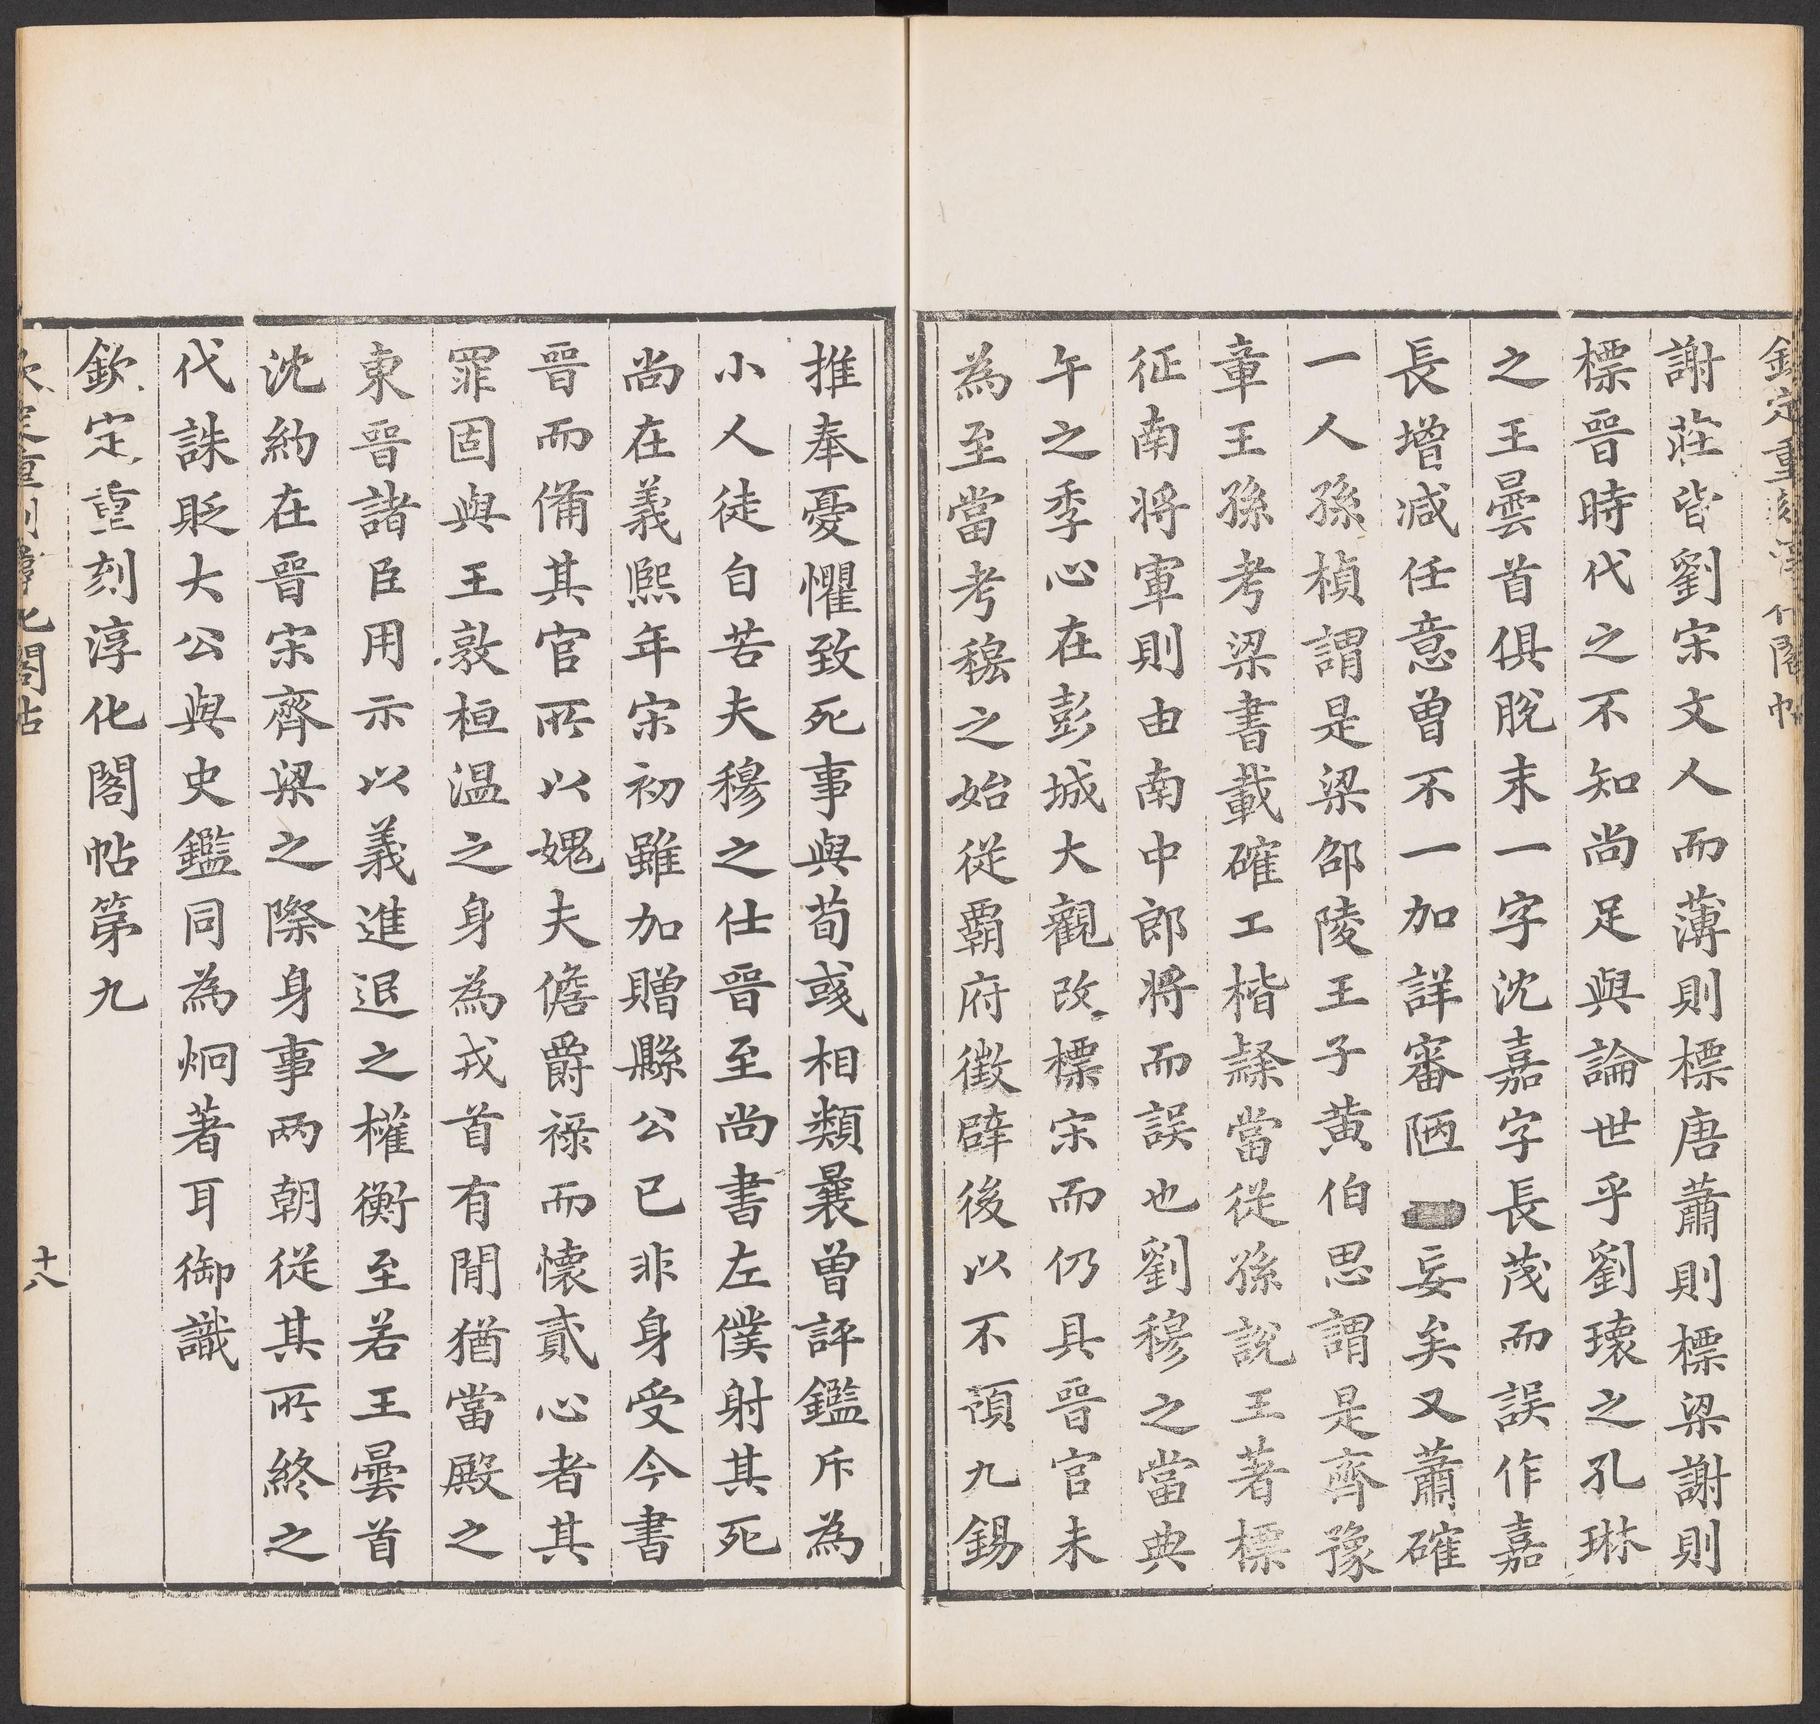 謝莊皆劉宋文人而薄則標唐蕭則標梁謝則
標晉時代之不知尚足與論世乎劉瓌之孔琳
之王曇首俱脫末一字沈嘉字長茂而誤作嘉
長增減任意曾不一加詳審陋妄矣又蕭確
一人孫楨謂是梁邵陵王子黃伯思謂是齊豫
章王孫考梁書載確工楷隸當從孫說王著標
征南將軍則由南中郎將而誤也劉穆之當典
午之季心在彭城大觀改標宋而仍具晉官未
為至當考穆之始從霸府徵辟後以不預九錫
推奉憂懼致死事與荀彧相類曩曾評鑑斥為
小人徒自苦夫穆之仕晉至尚書左僕射其死
尚在義熙年宋初雖加贈縣公已非身受今書
晉而備其官所以媿夫儋爵祿而懷貳心者其
罪固與王敦桓温之身為戎首有間猶當殿之
東晉諸臣用示以義進退之權衡至若王曇首
沈約在晉宋齊梁之際身事兩朝從其所終之
代誅貶大公與史鑑同為炯著耳御識
欽定重刻淳化閣帖第九
十八